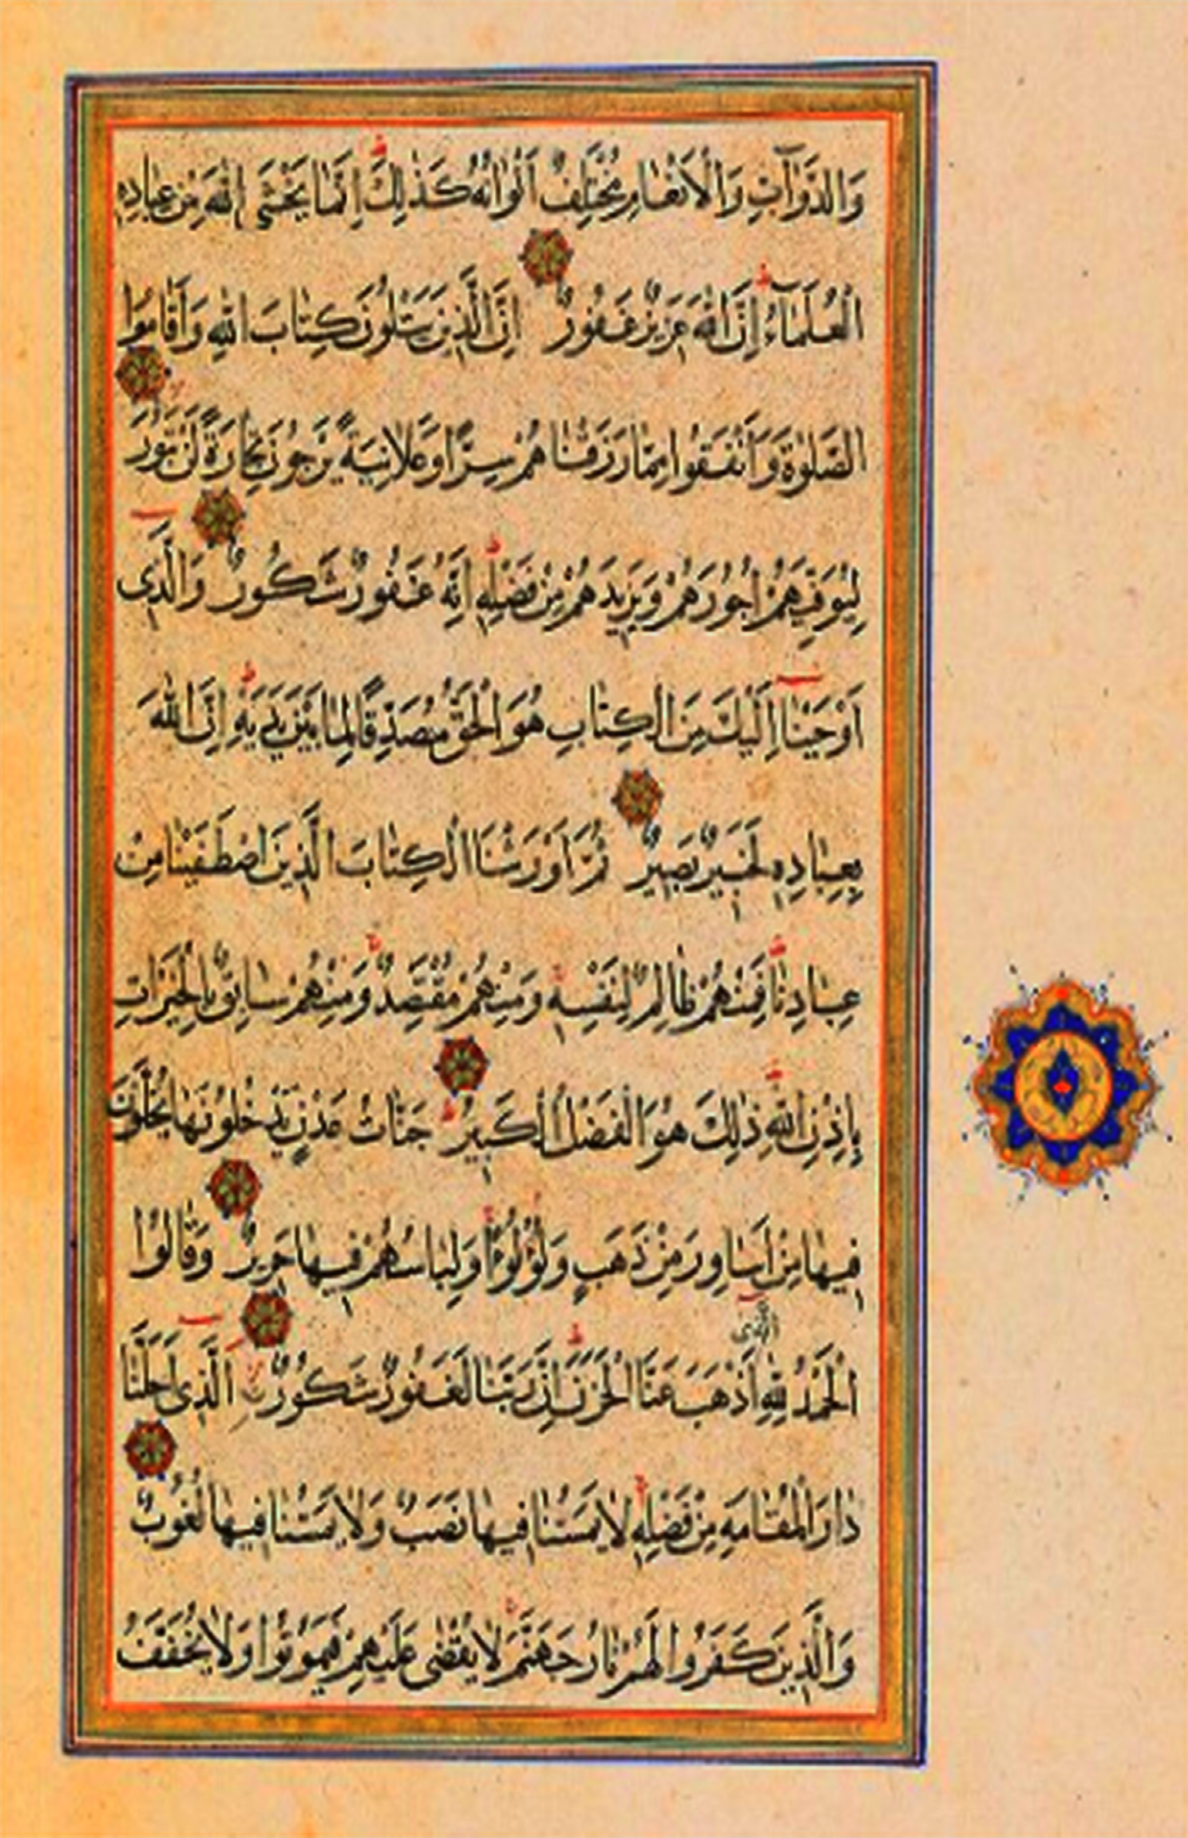 وَالدَّوَآبِّ وَالْاَنْعَامِ مُخْتَلِفٌ اَلْوَانُهُ كَذٰلِكَ اِنَّمَا يَخْشَى اللّٰهَ مِنْ عِبَادِهِ
الْعُلَمَآءُ اِنَّ اللّٰهَ عَزِيزٌ غَفُورٌ اِنَّ الَّذِينَ يَتْلُونَ كِتَابَ اللّٰهِ وَاَقَامُوا
الصَّلٰوةَ وَاَنْفَقُوا مِمَّا رَزَقْنَا هُمْ سِرًّا وَعَلَانِيَةً يَرْجُونَ تِجَارَةً لَنْ تَبُورَ
لِيُوَفِّيَهُمْ اُجُورَهُمْ وَيَزِيدَهُمْ مِنْ فَضْلِهِ اِنَّهُ غَفُورٌ شَكُورٌ وَالَّذِى
اَوْحَيْنَا اِلَيْكَ مِنَ الْكِتَابِ هُوَ الْحَقُّ مُصَدِّقًا لِمَا بَيْنَ يَدَيْهِ اِنَّ اللّٰهَ
بِعِبَادِهِ لَخَبِيرٌ بَصِيرٌ ثُمَّ اَوْرَثْنَا الْكِتَابَ الَّذِينَ اصْطَفَيْنَا مِنْ
عِبَادِنَا فَمِنْهُمْ ظَالِمٌ لِنَفْسِهِ وَمِنْهُمْ مُقْتَصِدٌ وَمِنْهُمْ سَابِقٌ بِالْخَيْرَاتِ
بِاِذْنِ اللّٰهِ ذٰلِكَ هُوَ الْفَضْلُ الْكَبِيرُ جَنَّاتُ عَدْنٍ يَدْخُلُونَهَا يُحَلَّوْنَ
فِيهَا مِنْ اَسَاوِرَ مِنْ ذَهَبٍ وَلُؤْلُؤًا وَلِبَاسُهُمْ فِيهَا حَرِيرٌ وَقَالُوا
الْحَمْدُ لِلّٰهِ الَّذِى اَذْهَبَ عَنَّا الْحَزَنَ اِنَّ رَبَّنَا لَغَفُورٌ شَكُورٌ الَّذِى اَحَلَّنَا
دَارَ الْمُقَامَةِ مِنْ فَضْلِهِ لَا يَمَسُّنَا فِيهَا نَصَبٌ وَلَا يَمَسُّنَا فِيهَا لُغُوبٌ
وَالَّذِينَ كَفَرُوا لَهُمْ نَارُ جَهَنَّمَ لَا يُقْضٰى عَلَيْهِمْ فَيَمُوتُوا وَلَا يُخَفَّفُ